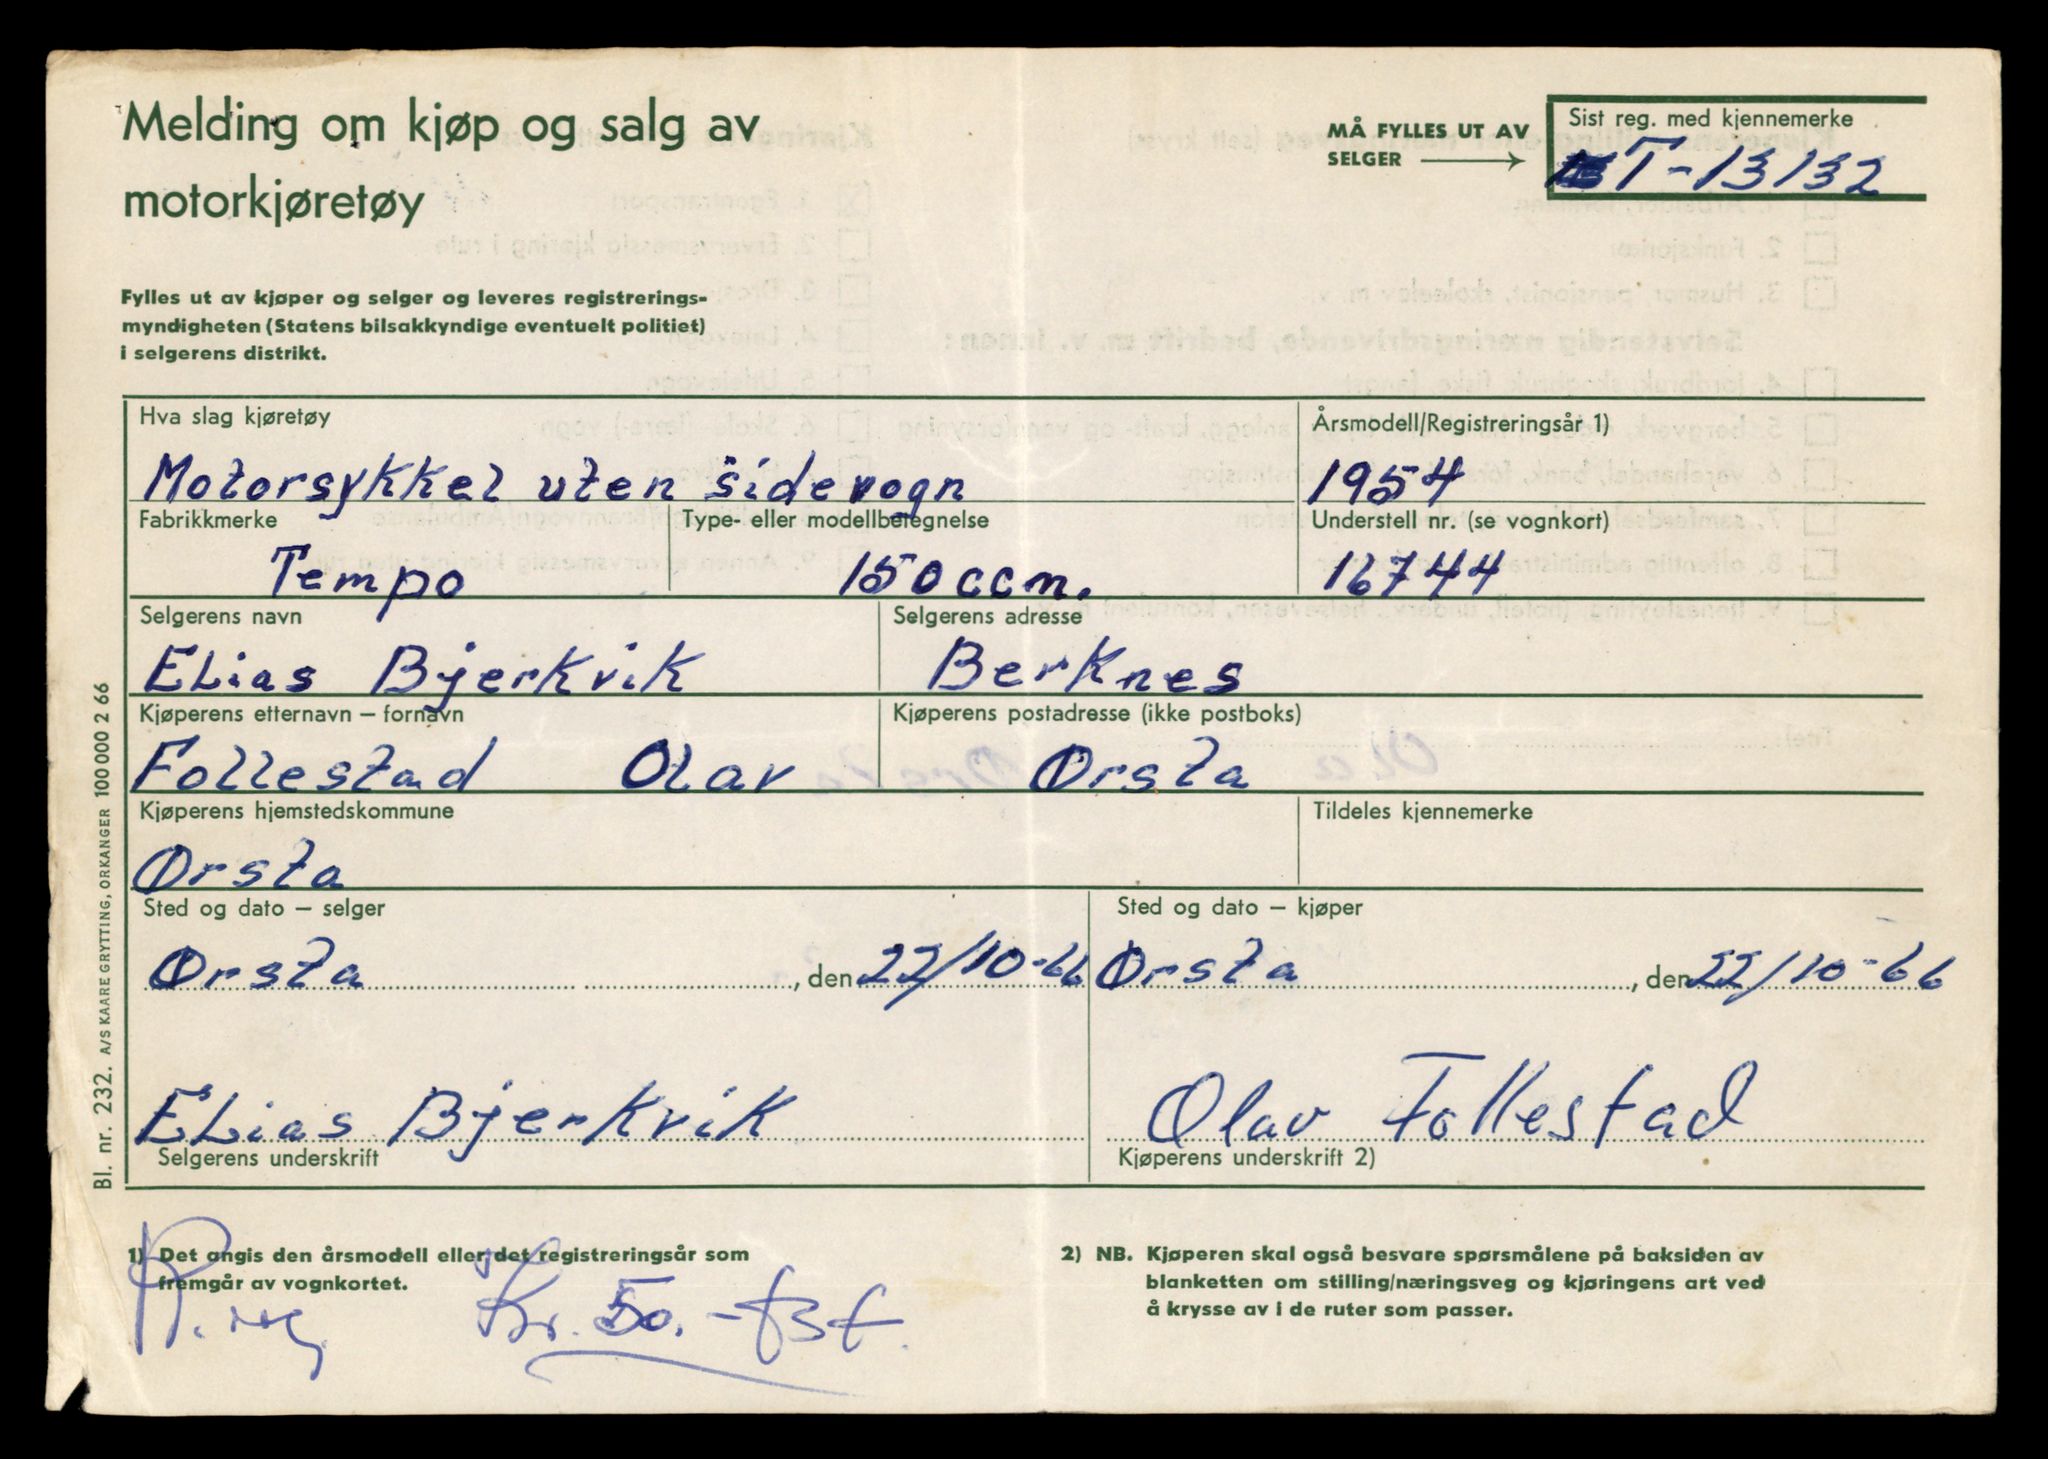 Melding om kjøp og salg av
motorkjøretøy
MÅ FYLLES UT AV
SELGER
Sist reg. med kjennemerke
T-13132
Fylles ut av kjøper og selger og leveres registrerings-
myndigheten (Statens bilsakkyndige eventuelt politiet)
i selgerens distrikt.
Hva slag kjøretøy
Årsmodell/Registreringsår 1)
Motorsykkel uten sidevogn
1954
Fabrikkmerke
Type- eller modellbetegnelse
Understell nr. (se vognkort)
Tempo
150 ccm.
16744
Selgerens navn
Selgerens adresse
Elias Bjerkvik
Berknes
Kjøperens etternavn – fornavn
Kjøperens postadresse (ikke postboks)
Follestad Olav
Ørsta
Kjøperens hjemstedskommune
Tildeles kjennemerke
Ørsta
Sted og dato – selger
Sted og dato – kjøper
Ørsta, den 22/10-66
Ørsta, den 22/10-66
Elias Bjerkvik
Olav Follestad
Selgerens underskrift
Kjøperens underskrift 2)
1) Det angis den årsmodell eller det registreringsår som
fremgår av vognkortet.
2) NB. Kjøperen skal også besvare spørsmålene på baksiden av
blanketten om stilling/næringsveg og kjøringens art ved
å krysse av i de ruter som passer.
Kr. 50.-
Bl. nr. 232. A/S KAARE GRYTTING, ORKANGER 100 000 2 66